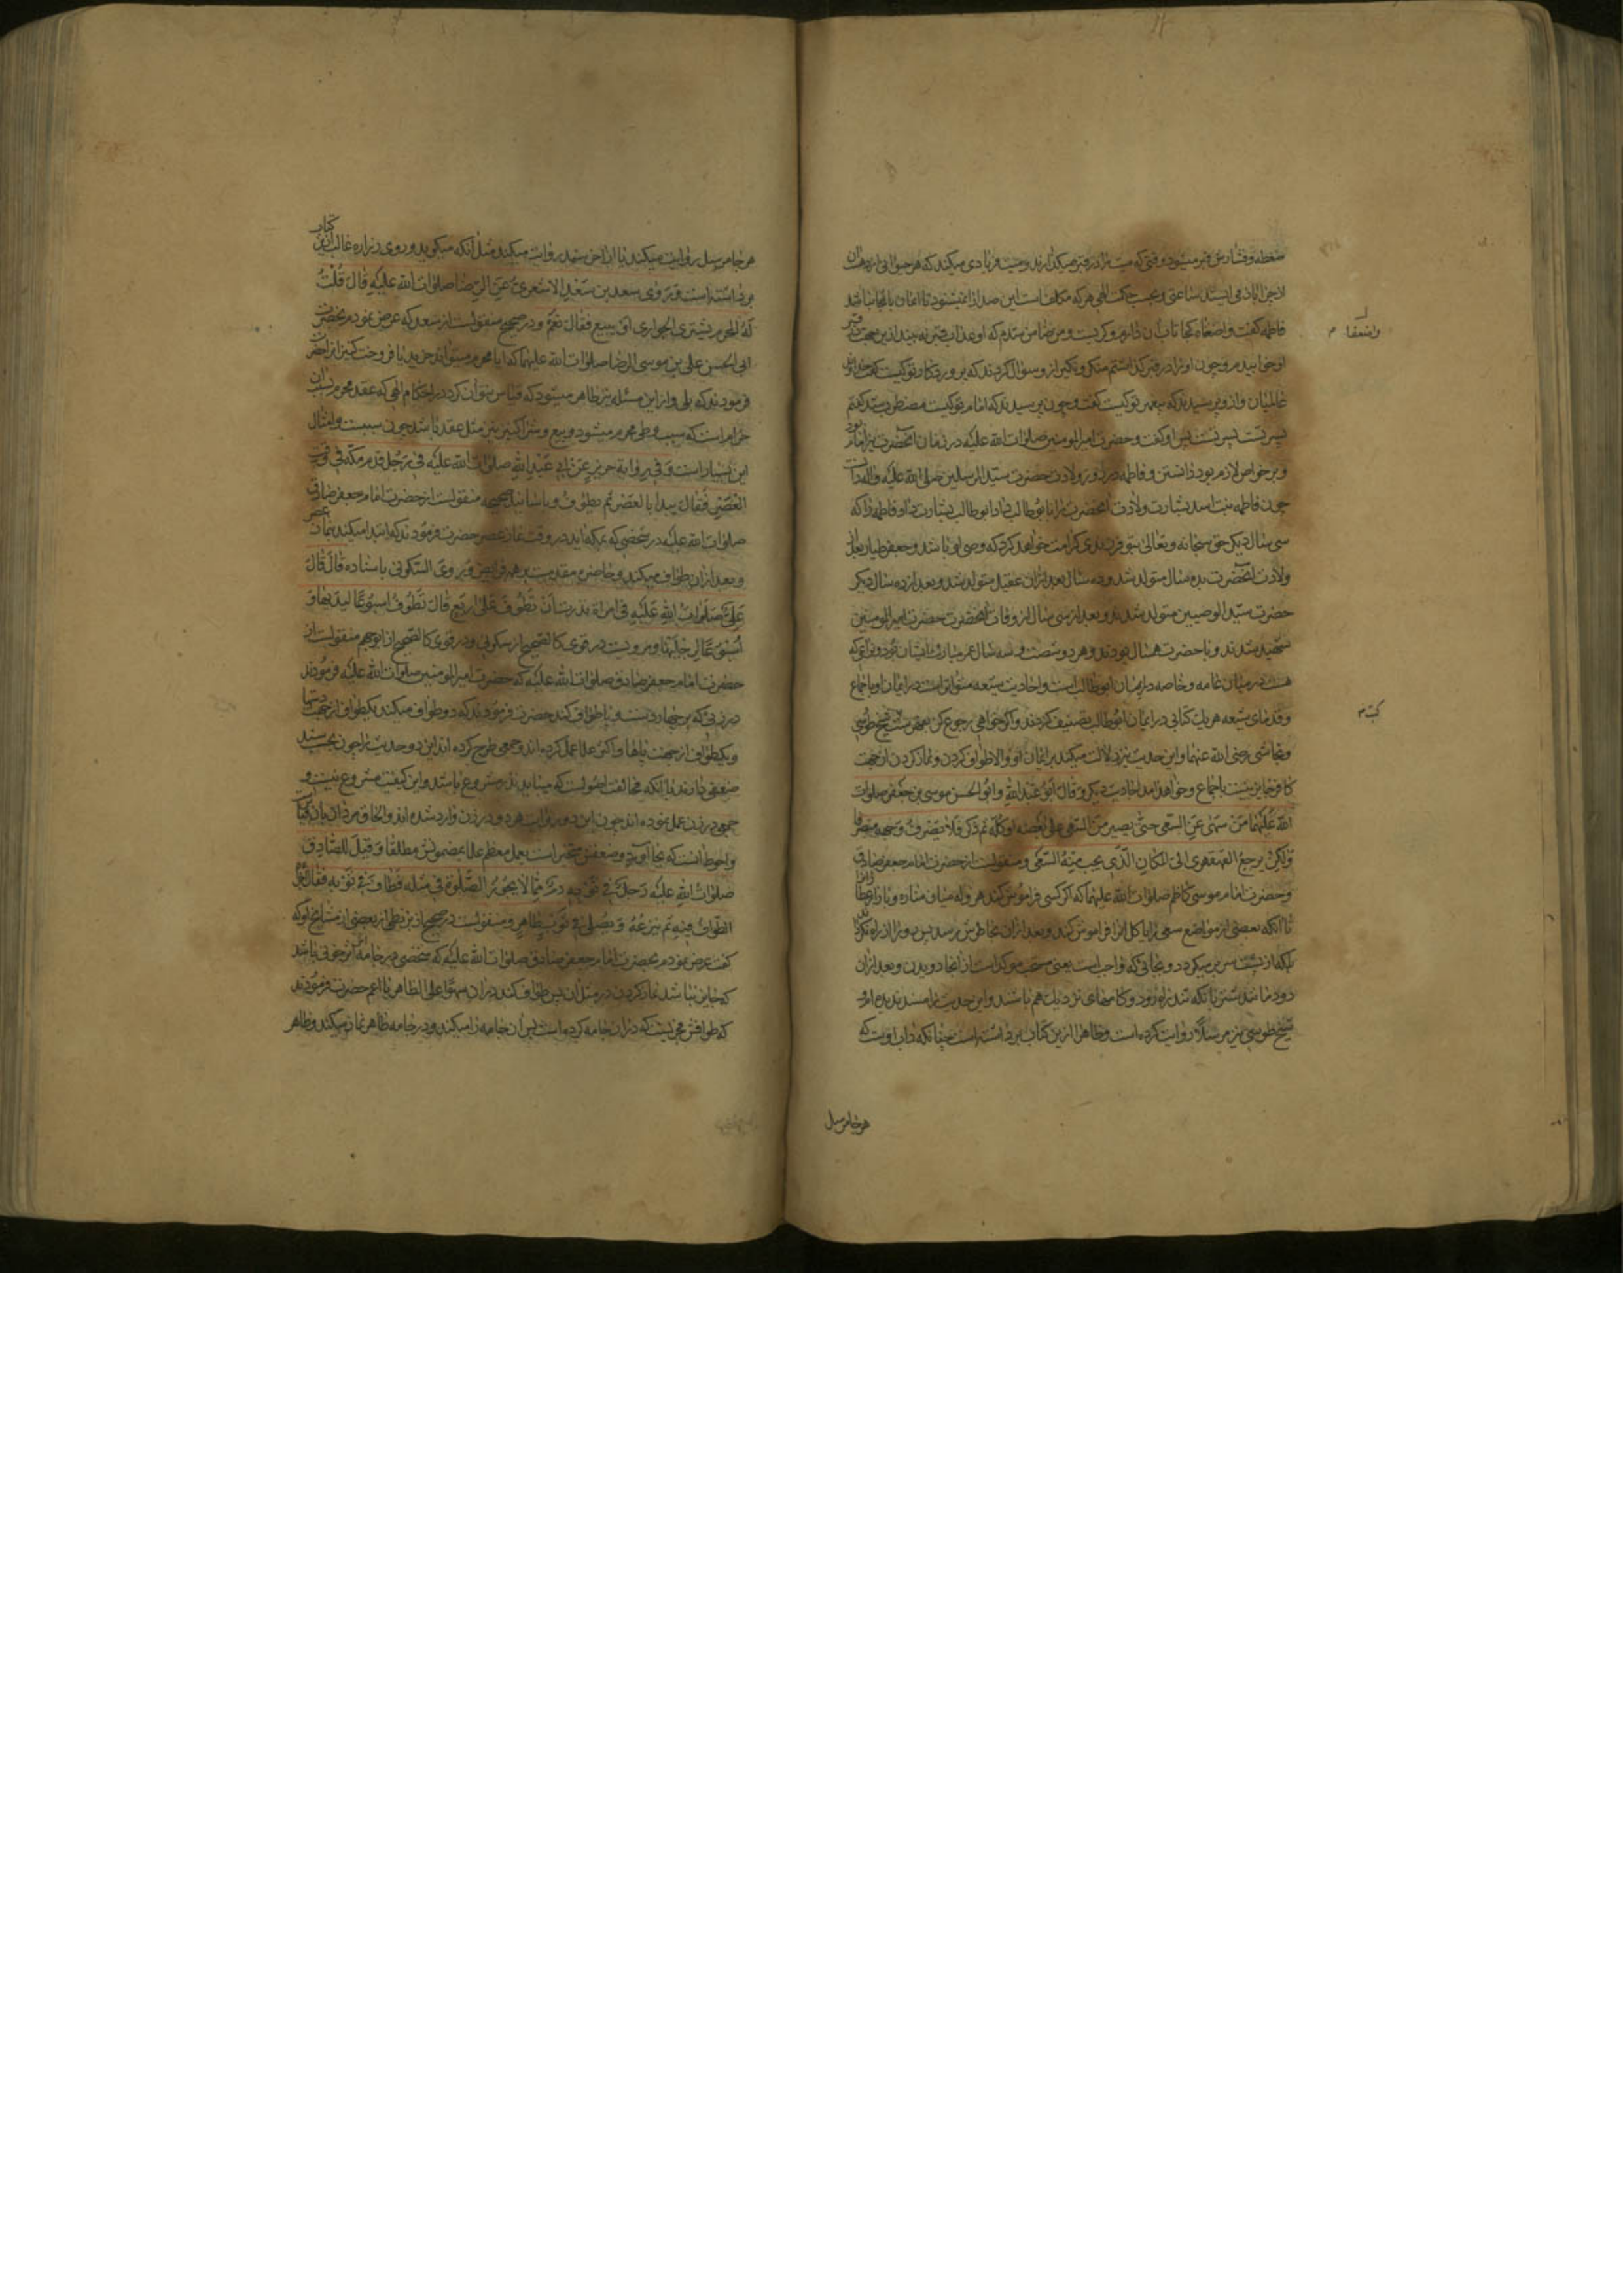 ضغطه و فشارش قبر میشود وقتی که میت را در قبر میگذارند و میت فریادی میکند که هر حیوانی از دهان
لاجرا باز می ایستد ساعتی و بحسب حکمت الهی هر که مکلف است این صدا را نمیشنود تا ایمان بالجا نباشد
فاطمه گفت واضعفاه کجا تاب آن دارم و گریست و من ضامن شدم که او عذاب قبر نه بیند ازین جهت در قبر
او خوابیدم و چون او را در قبر گذاشتم منکر و نکیر از و سوال کردند که پروردگار تو کیست گفت خداوند
عالمیان و ازو پرسیدند که پیغمبر تو کیست گفت و چون پرسیدند که امام تو کیست مضطرب شد گفتم
پسرت پسرت پس او گفت و حضرت امیرالمومنین صلوات الله علیه در زمان آنحضرت نیز امام بود
و بر خواص لازم بود دانستن و فاطمه در روز ولادت حضرت سید المرسلین صلی الله علیه و آله
چون فاطمه بنت اسد بشارت ولادت آنحضرت را با بوطالب داد ابوطالب بشارت داد فاطمه را که
سی سال دیگر حق سبحانه و تعالی بتو فرزندی کرامت خواهد کرد که وصی او باشد و جعفر طیار بعد از
ولادت آنحضرت بده سال متولد شد و ده سال بعد از ان عقیل متولد شد و بعد از ده سال دیگر
حضرت سید الوصیین متولد شدند و بعد از سی سال از وفات آنحضرت حضرت امیرالمومنین
شهید شدند و با حضرت همسال بودند و هر دو شصت و سه سال عمر مبارک ایشان بود و نزاعی که
هست در میان عامه و خاصه در ایمان ابوطالب است و احادیث شیعه متواتر است در ایمان او با جماع
و قدمای شیعه هر یک کتابی در ایمان ابوطالب تصنیف کردند و اگر خواهی رجوع کن بفهرست شیخ طوسی
و نجاشی رضی الله عنهما و این حدیث نیز دلالت میکند بر ایمان او و الا طواف کردن و نماز کردن از جهت
کافر جایز نیست باجماع و خواهد آمد احادیث دیگر و قال ابو عبد الله و ابو الحسن موسی بن جعفر صلوات
الله علیهما من سهی عن السعی حتی یصیر من السعی علی بعضه او کله ثم ذکر فلا یصرف وجهه منصرفا
و لکن یرجع القهقری الی المکان الذی یجب منه السعی و منقولست از حضرت امام جعفر صادق
و حضرت امام موسی کاظم صلوات الله علیهما که اگر کسی فراموش کند هروله میان مناره و بازار عطاران را
تا آنکه بعضی از مواضع سعی را یا کل آنرا فراموش کند و بعد از ان بخاطرش رسد پس رو را از راه نگرداند
بلکه از پشت سر بر میگردد و بجائی که واجب است یعنی مستحب موکد است از انجا دویدن و بعد از ان
شیخ طوسی نیز مرسلا روایت کرده است و ظاهرا ازین کتاب برداشته است چنانکه داب اوست که
هر جا مرسل
واضعفا م
کیست م
هر جا مرسل روایت میکند یا از اخر سند روایت میکند مثل آنکه میگوید و روی زراره غالبا ازین کتاب
برداشته است و روی سعد بن سعد الاشعری عن الرضا صلوات الله علیه قال قلت
له المحرم یشتری الجواری او یبیع فقال نعم و در صحیح منقولست از سعد که عرض نمودم بحضرت
ابی الحسن علی بن موسی الرضا صلوات الله علیهما که ایا محرم میتواند خرید یا فروخت کنیز را حضرت
فرمودند که بلی و از این مسئله نیز ظاهر میشود که قیاس نتوان کرد در احکام الهی که عقد محرم زنان
حرام است که سبب وطی محرم میشود و بیع و شرا کنیز نیز مثل عقد باشد چون سبب است و امثال
این بسیار است و فی روایة حریز عن ابی عبد الله صلوات الله علیه فی رجل قدم مکة فی وقت
العصر فقال یبدا بالعصر ثم یطوف و باسانید صحیحه منقولست از حضرت امام جعفر صادق
صلوات الله علیه در شخصی که بمکه آید در وقت نماز عصر حضرت فرمودند که ابتدا میکند بنماز عصر
و بعد از ان طواف میکند و حاضره مقدمست بر همه فرایض و روی السکونی باسناده قال قال
علی صلوات الله علیه فی امراة نذرت ان تطوف علی اربع قال تطوف اسبوعا لیدیها و
اسبوعا لرجلیها و مرویست در قوی کالصحیح از سکونی و در قوی کالصحیح از ابو جهم منقولست از
حضرت امام جعفر صادق صلوات الله علیه که حضرت امیرالمومنین صلوات الله علیه فرمودند
در زنی که بر چهار دست و پا طواف کند حضرت فرمودند که دو طواف میکند یکطواف از جهت دستها
و یکطواف از جهت پاها و اکثر علما عمل کرده اند و جمعی طرح کرده اند این دو حدیث را چون بحسب سند
ضعفی دارند با آنکه مخالفت اصولست که میباید نذر مشروع باشد و این کیفیت مشروع نیست و
جمعی در زن عمل نموده اند چون این دو روایت هر دو در زن وارد شده اند و الحاق مردان بان
و احوط آنست که بجا آورد و ضعفش منجبر است بعمل معظم علما بمضمونش مطلقا و قیل للصادق
صلوات الله علیه رجل فی ثوبه دم مما لا یجوز الصلوة فی مثله فطاف فی ثوبه فقال اجزاه
الطواف فیه ثم ینزعه و یصلی فی ثوب طاهر و منقولست در صحیح از بزنطی از بعضی از مشایخ او که
گفت عرض نمودم بحضرت امام جعفر صادق صلوات الله علیه که شخصی در جامه اش خونی باشد
که جایز نباشد نماز کردن در مثل آن پس طواف کند در ان سهوا علی الظاهر یا اعم حضرت فرمودند
که طوافش مجزیست که در ان جامه کرده است پس ان جامه را میکند و در جامه طاهر نماز میکند و ظاهر